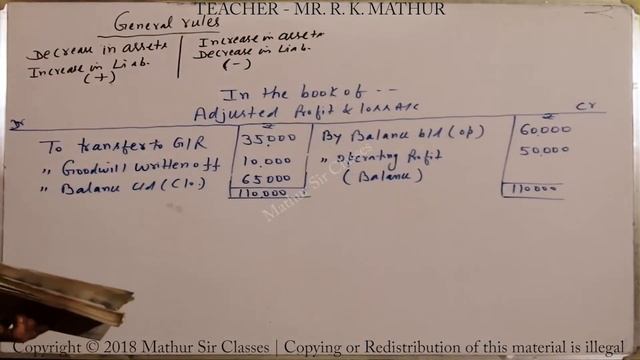 TEACHER - MR. R. K. MATHUR
General rules
Decrease in assets
Increase in Liab.
(+)
Increase in assets
Decrease in Liab.
(-)
In the book of --
Adjusted Profit & Loss A/c
Dr
Cr
To transfer to G/R 35,000 By Balance b/d (op) 60,000
" Goodwill written off 10,000 " operating Profit 50,000
" Balance c/d (Clo.) 65000 (Balance)
110,000 110,000
Mathur Sir Classes
Copyright © 2018 Mathur Sir Classes | Copying or Redistribution of this material is illegal